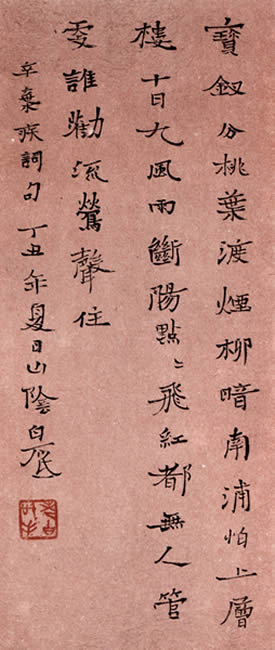 寶釵分桃葉渡煙柳暗南浦怕上層
樓十日九風雨斷陽點〻飛紅都無人管
更誰勸流鶯聲住
辛棄疾詞句 丁丑年夏日山陰白砥